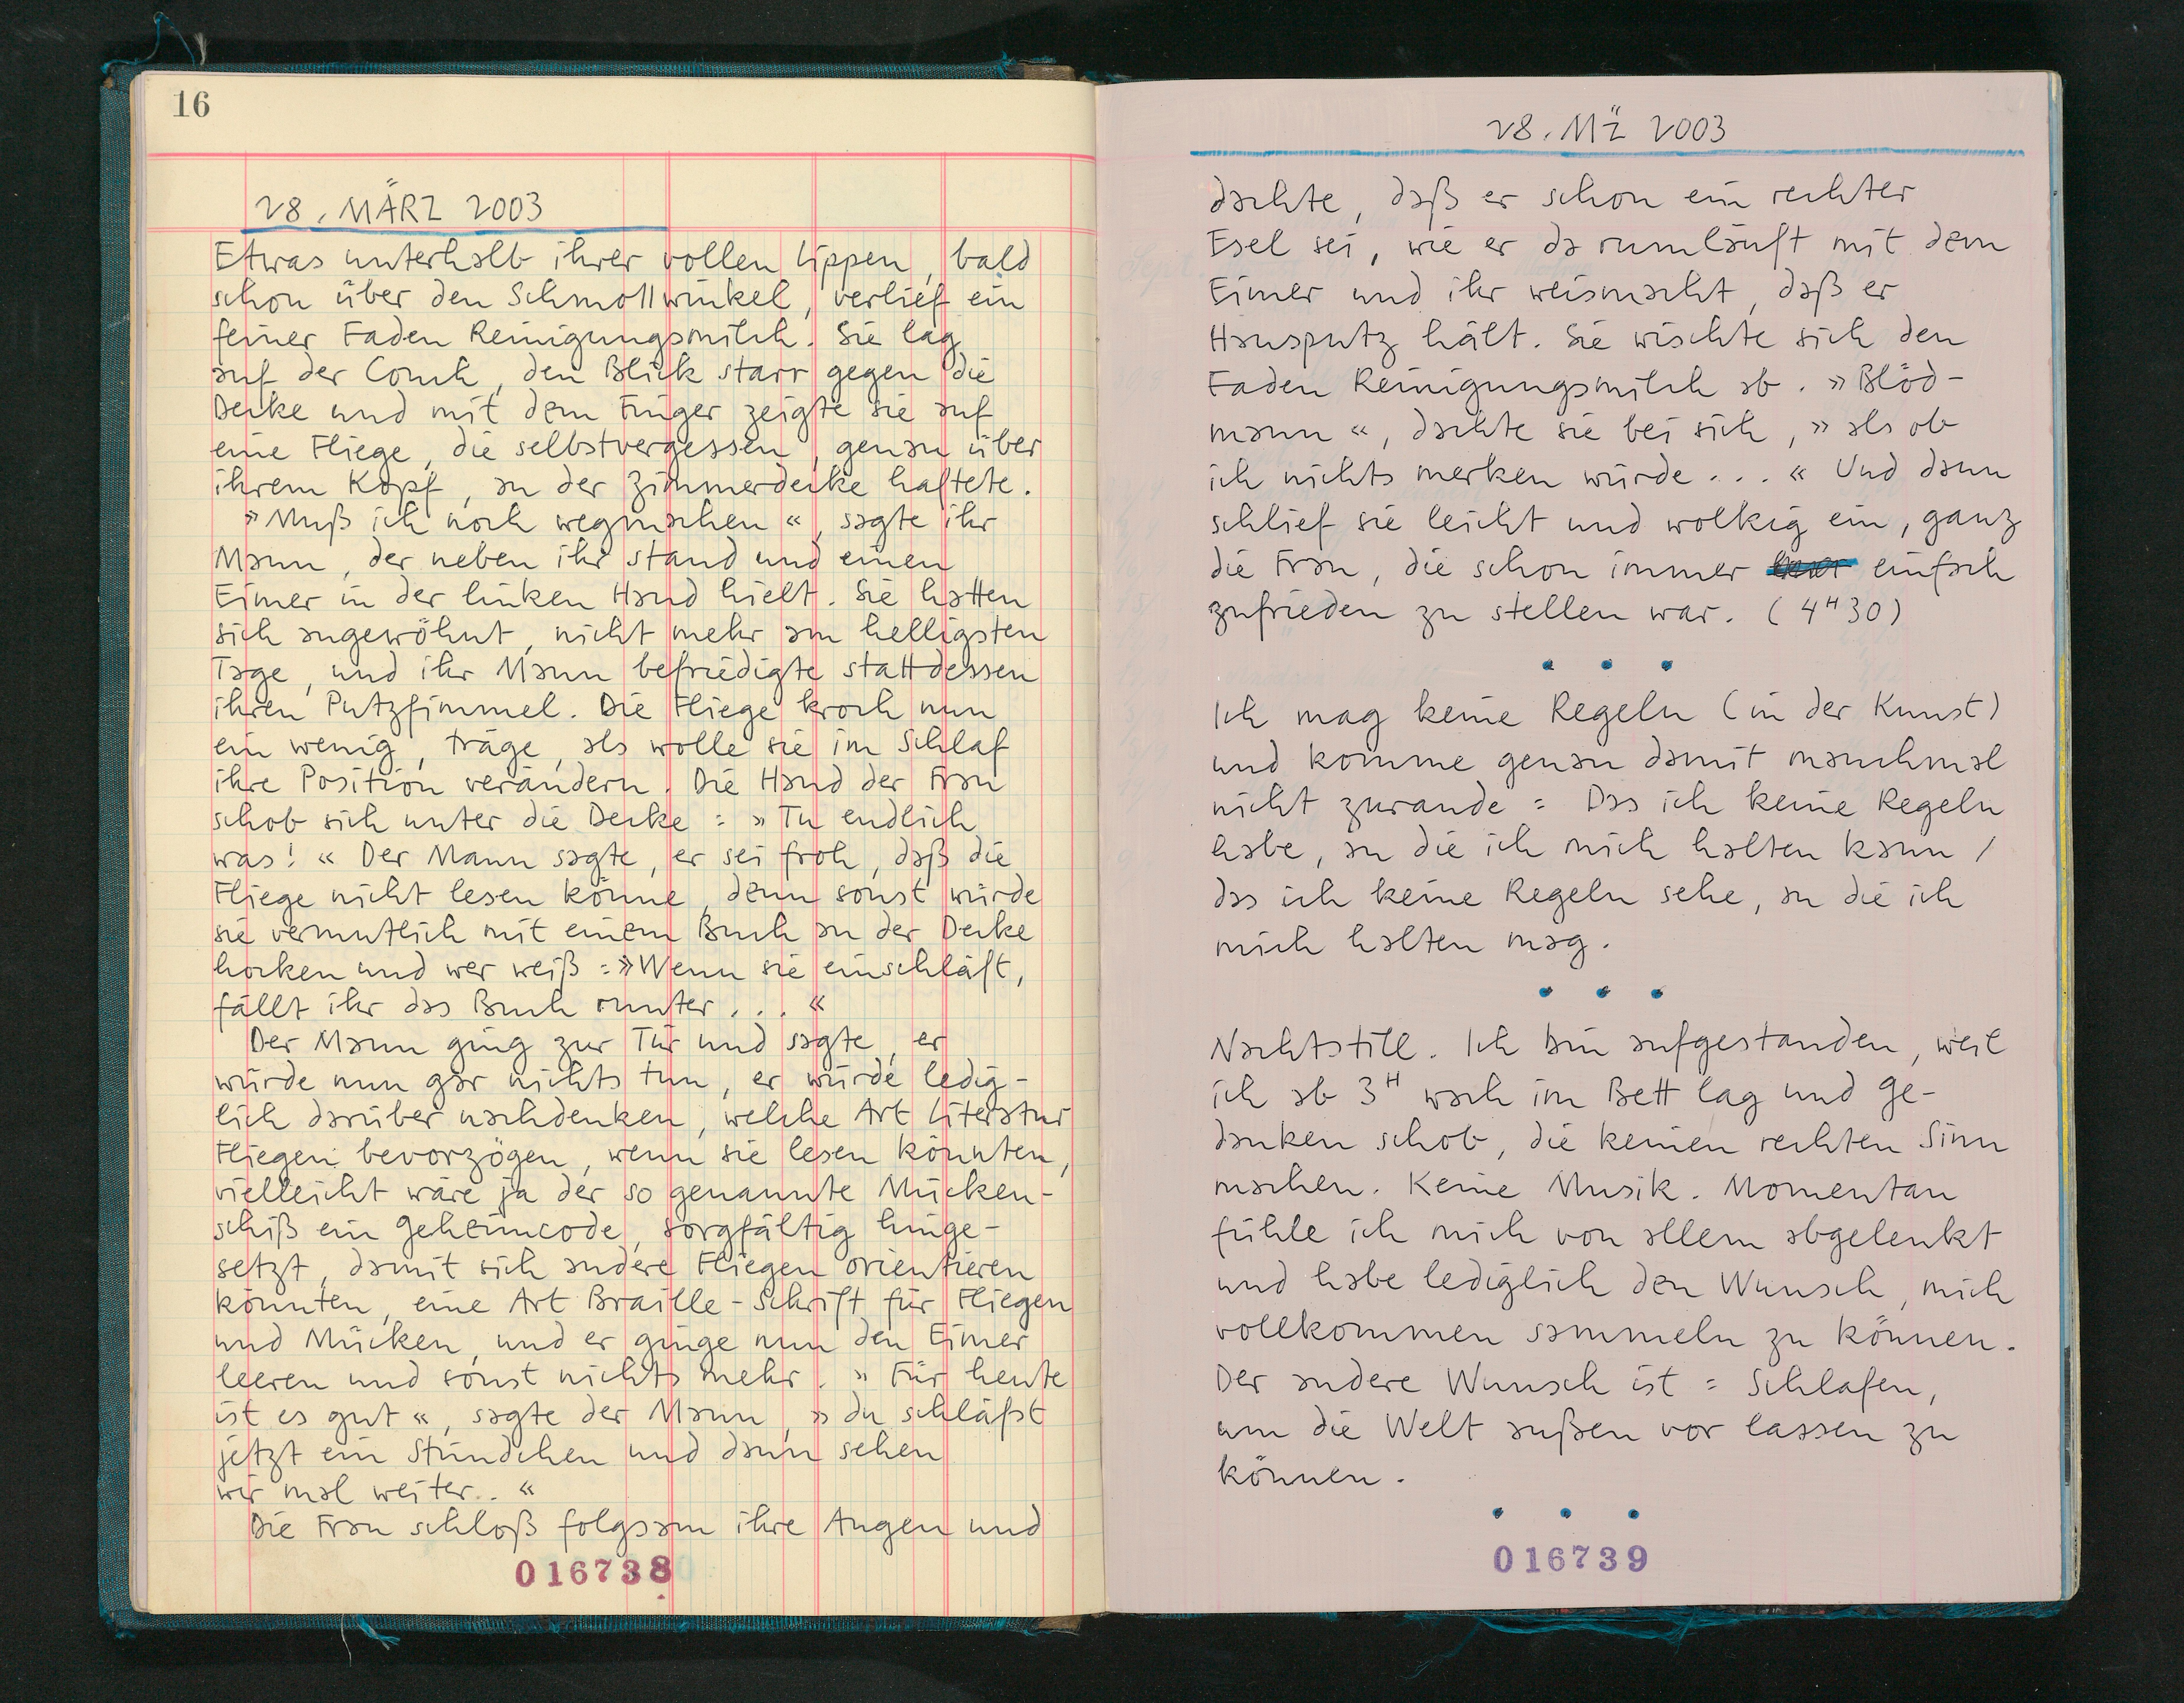 16
28. MÄRZ 2003
Etwas unterhalb ihrer vollen Lippen, bald
schon über den Schmollwinkel, verlief ein
feiner Faden Reinigungsmilch. Sie lag
auf der Couch, den Blick starr gegen die
Decke und mit dem Finger zeigte sie auf
eine Fliege, die selbstvergessen, genau über
ihrem Kopf, an der Zimmerdecke haftete.
»Muß ich noch wegmachen«, sagte ihr
Mann, der neben ihr stand und einen
Eimer in der linken Hand hielt. Sie hatten
sich angewöhnt, nicht mehr am helligsten
Tage, und ihr Mann befriedigte stattdessen
ihren Putzfimmel. Die Fliege kroch nun
ein wenig, träge, als wolle sie im Schlaf
ihre Position verändern. Die Hand der Frau
schob sich unter die Decke: »Tu endlich
was!« Der Mann sagte, er sei froh, daß die
Fliege nicht lesen könne, denn sonst würde
sie vermutlich mit einem Buch an der Decke
hocken und wer weiß: »Wenn sie einschläft,
fällt ihr das Buch runter...«
Der Mann ging zur Tür und sagte, er
würde nun gar nichts tun, er würde ledig-
lich darüber nachdenken, welche Art Literatur
Fliegen bevorzögen, wenn sie lesen könnten,
vielleicht wäre ja der so genannte Mücken-
schiß ein Geheimcode, sorgfältig hinge-
setzt, damit sich andere Fliegen orientieren
könnten, eine Art Braille-Schrift für Fliegen
und Mücken, und er ginge nun den Eimer
leeren und sonst nichts mehr. »Für heute
ist es gut«, sagte der Mann, »du schläfst
jetzt ein Stündchen und dann sehen
wir mal weiter..«
Die Frau schloß folgsam ihre Augen und
016738
28. MÄ 2003
dachte, daß er schon ein rechter
Esel sei, wie er da rumläuft mit dem
Eimer und ihr weismacht, daß er
Hausputz hält. Sie wischte sich den
Faden Reinigungsmilch ab. »Blöd-
mann«, dachte sie bei sich, »als ob
ich nichts merken würde...« Und dann
schlief sie leicht und wolkig ein, ganz
die Frau, die schon immer einfach
zufrieden zu stellen war. (4H30)
• • •
Ich mag keine Regeln (in der Kunst)
und komme genau damit manchmal
nicht zurande: Das ich keine Regeln
habe, an die ich mich halten kann /
das ich keine Regeln sehe, an die ich
mich halten mag.
• • •
Nachtstill. Ich bin aufgestanden, weil
ich ab 3H wach im Bett lag und Ge-
danken schob, die keinen rechten Sinn
machen. Keine Musik. Momentan
fühle ich mich von allem abgelenkt
und habe lediglich den Wunsch, mich
vollkommen sammeln zu können.
Der andere Wunsch ist: Schlafen,
um die Welt außen vor lassen zu
können.
• • •
016739